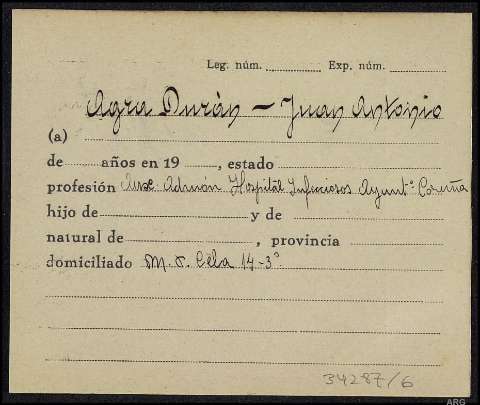 Leg. núm. Exp. núm.
Agra Durán - Juan Antonio
(a)
de años en 19 , estado
profesión Aux. Admón Hospital Infecciosos Ayuntº Coruña
hijo de y de
natural de , provincia
domiciliado M. P. Cela 14-3º
34287/6
ARG